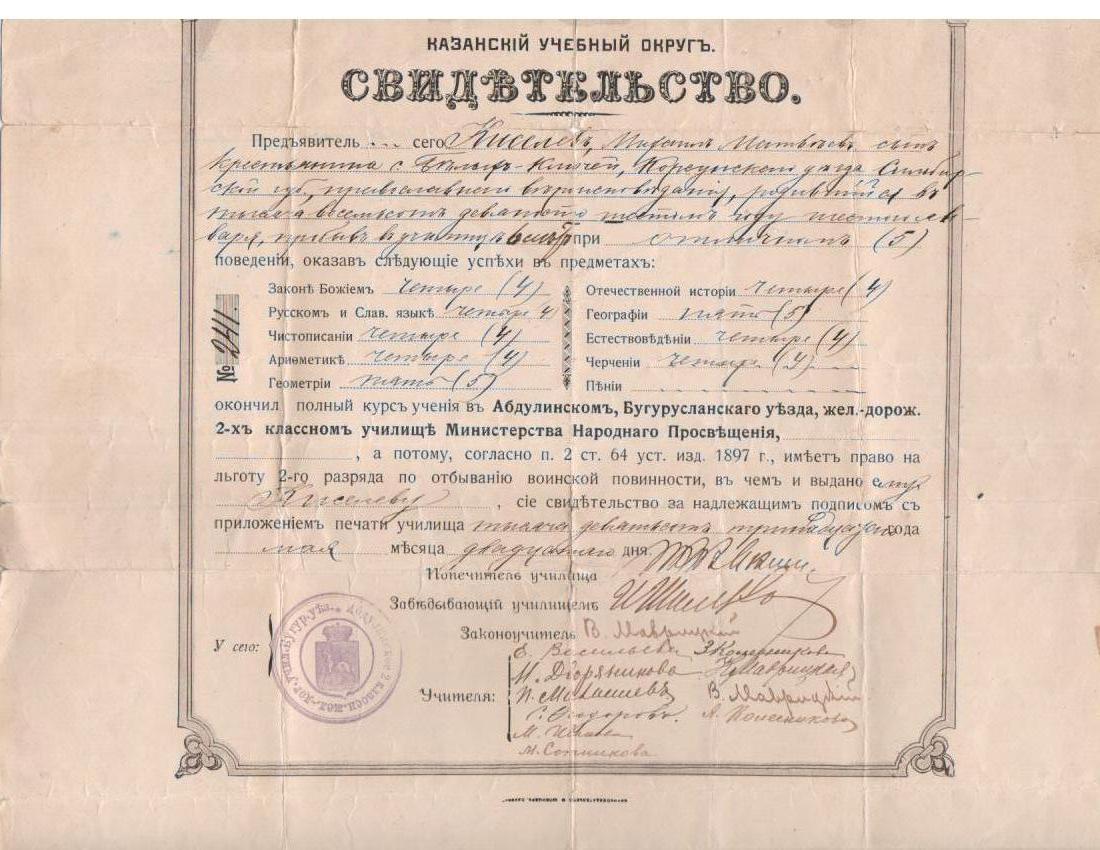 КАЗАНСКІЙ УЧЕБНЫЙ ОКРУГЪ.
СВИДѢТЕЛЬСТВО.
Предъявитель сего Киселевъ, Михаилъ Матвѣевъ сынъ
крестьянина с. Ключей, Корсунскаго уѣзда Симбир-
ской губ, православнаго вѣроисповѣданія, родившійся въ
тысяча восемьсотъ девяносто шестомъ году шестого ян-
варя, пробывъ въ училищѣ при отличномъ (5)
поведеніи, оказавъ слѣдующіе успѣхи въ предметахъ:
Законѣ Божіемъ четыре (4)
Русскомъ и Слав. языкѣ четыре 4)
Чистописаніи четыре (4)
Ариѳметикѣ четыре (4)
Геометріи пять (5)
Отечественной исторіи четыре (4)
Географіи пять (5)
Естествовѣдѣніи четыре (4)
Черченіи четыре (4)
Пѣніи
№ 241.
окончил полный курсъ ученія въ Абдулинскомъ, Бугурусланскаго уѣзда, жел.-дорож.
2-хъ классномъ училищѣ Министерства Народнаго Просвѣщенія,
, а потому, согласно п. 2 ст. 64 уст. изд. 1897 г., имѣетъ право на
льготу 2-го разряда по отбыванію воинской повинности, въ чемъ и выдано ему
Киселеву, сіе свидѣтельство за надлежащимъ подписомъ съ
приложеніемъ печати училища тысяча девятьсотъ тринадцатаго года
мая мѣсяца двадцатаго дня.
Попечитель училища
Завѣдывающій училищемъ
Законоучитель В. Маврицкій
У сего:
Учителя:
Е. Васильева
М. Дворяникова
П. Малышевъ
С. Ѳедоровъ.
М. Сотникова
Н. Маврицкая
В. Маврицкій
А. Колесникова